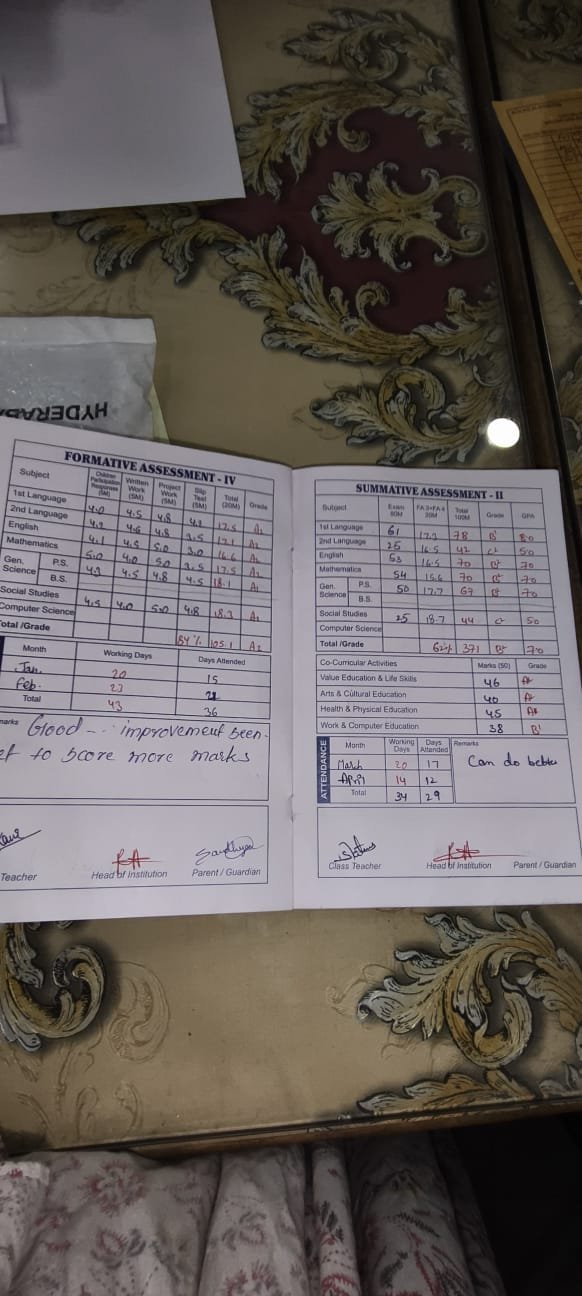 HYDERABA
FORMATIVE ASSESSMENT - IV
Subject Children Participation Responses (5M) Written Work (5M) Project Work (5M) Slip Test (5M) Total (20M) Grade
1st Language 4.0 4.5 4.8 4.2 17.5 A1
2nd Language 4.2 4.6 4.8 3.5 17.1 A1
English 4.1 4.5 5.0 3.0 16.6 A2
Mathematics 5.0 4.0 5.0 3.5 17.5 A2
Gen. Science P.S. 4.3 4.5 4.8 4.5 18.1 A1
B.S.
Social Studies 4.5 4.0 5.0 4.8 18.3 A1
Computer Science
Total /Grade 84% 105.1 A2
Month Working Days Days Attended
Jan. 20 15
Feb. 23
Total 43 36
marks Good -- improvement seen.
to score more marks
Teacher Head of Institution Parent / Guardian
SUMMATIVE ASSESSMENT - II
Subject Exam 80M FA 3+FA 4 20M Total 100M Grade GPA
1st Language 61 17.3 78 B+ 8.0
2nd Language 25 16.5 42 C+ 50
English 53 16.5 70 B+ 70
Mathematics 54 15.6 70 B+ 70
Gen. Science P.S. 50 17.7 67 B+ 70
B.S.
Social Studies 25 18.7 44 C+ 50
Computer Science
Total /Grade 62% 371 B+ 70
Co-Curricular Activities Marks (50) Grade
Value Education & Life Skills 46 A+
Arts & Cultural Education 40 A+
Health & Physical Education 45
Work & Computer Education 38 B+
ATTENDANCE
Month Working Days Days Attended Remarks
March 20 17 Can do better
April 14 12
Total 34 29
Class Teacher Head of Institution Parent / Guardian